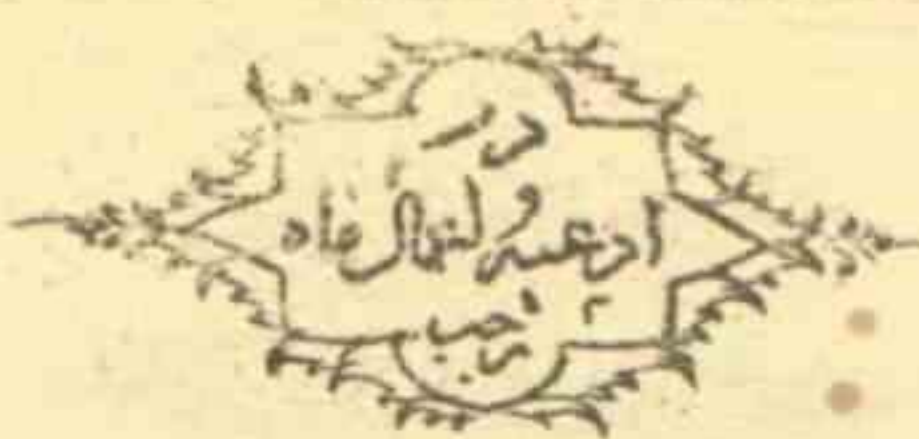 در
ادعیه و اعمال ماه
رجب